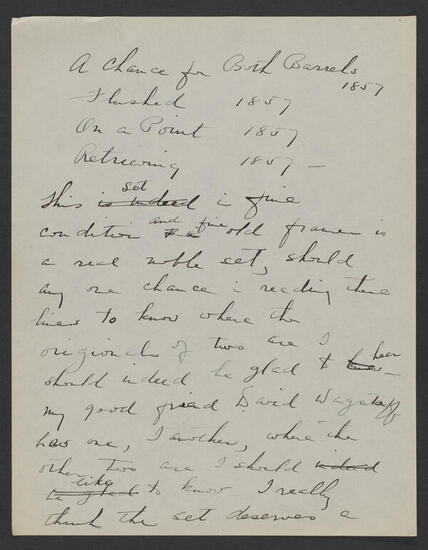 A Chance for Both Barrels
1857
Flushed 1857
On a Point 1857
Retrieving 1857 —
set
This is indeed in fine
and fine
condition & a old frames is
a real noble set, should
any one chance in reading these
lines to know where the
originals of two are I
hear
should indeed be glad to know —
my good friend David Wagstaff
has one, I another, where the
other two are I should indeed
like
be glad to know. I really
think the set deserves a